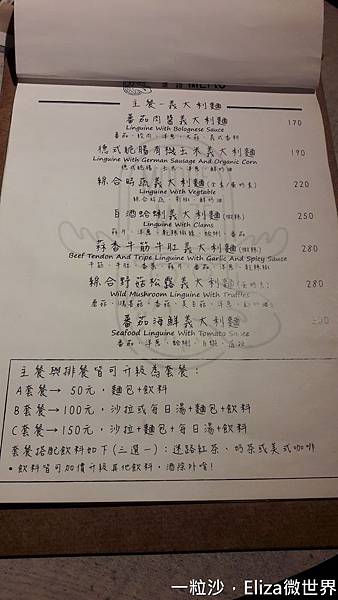 MENU
主餐-義大利麵
番茄肉醬義大利麵 170
Linguine With Bolognese Sauce
番茄、絞肉、洋蔥、大蒜、義式香料
德式脆腸有機玉米義大利麵 190
Linguine With German Sausage And Organic Corn
德式脆腸、玉米、洋蔥、鮮奶油
綜合時蔬義大利麵 220
Linguine With Vegtable
白酒蛤蜊義大利麵(微辣) 250
Linguine With Clams
蒜片、洋蔥、乾辣椒、蛤蜊、番茄
蒜香牛筋牛肚義大利麵(微辣) 280
Beef Tendon And Tripe Linguine With Garlic And Spicy Sauce
牛筋、牛肚、蒜片、番茄、洋蔥、乾辣椒
綜合野菇松露義大利麵 280
Wild Mushroom Linguine With Truffles
番茄海鮮義大利麵
Seafood Linguine With Tomato Sauce
番茄、洋蔥、蛤蜊
主餐與排餐皆可升級為套餐：
A套餐→ 50元，麵包+飲料
B套餐→100元，沙拉或每日湯+麵包+飲料
C套餐→150元，沙拉+麵包+每日湯+飲料
套餐搭配飲料如下(三選一)：迷路紅茶、奶茶或美式咖啡
•飲料皆可加價升級其他飲料，酒除外唷!
一粒沙，Eliza微世界